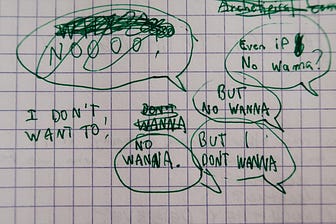 NOOOO,
Even if
No wanna?
BUT
NO WANNA
I DON'T,
WANT TO,
DON'T
WANNA
NO
WANNA.
BUT I
DONT WANNA